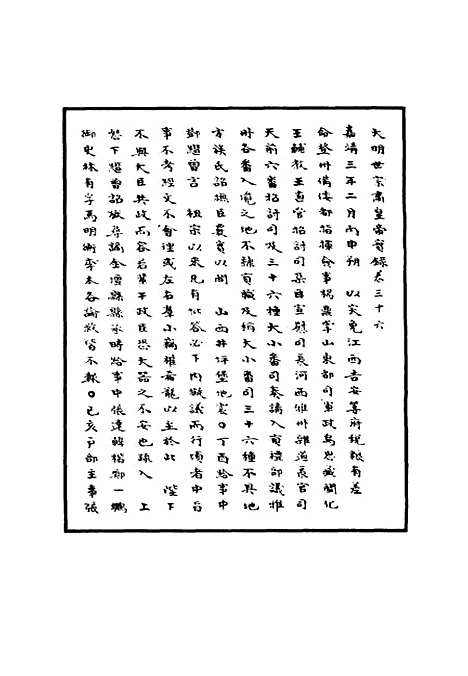 大明世宗肅皇帝實錄卷三十六
嘉靖三年二月丙申朔　以災免江西吉安等府稅粮有差
命登州備倭都指揮僉事楊鼎掌山東都司軍政烏思藏闡化
王輔教王直管招討司朶甘宣慰司長河西雅州雜道長官司
天前六番招討司及三十六種大小番司奏請入貢禮部議雅
州各番入滝之地不孫貢職及稍大小番司三十六種不具地
方族氏詔撫臣覈實以聞　山西井坪堡地震〇丁酉給事中
鄧繼曾言　祖宗以來凡有批答必下內閣議而行頃者中旨
事不考經文不會理或左右羣小竊權希寵以至於此　陛下
不與大臣共政而容若輩干政臣恐大器之不安也疏入　上
怒下繼曾詔獄尋謫金壇縣縣丞時給事中張逵韓楷鄭一鵬
御史林有孚馬明衡季本各論救皆不報〇己亥戶部主事張